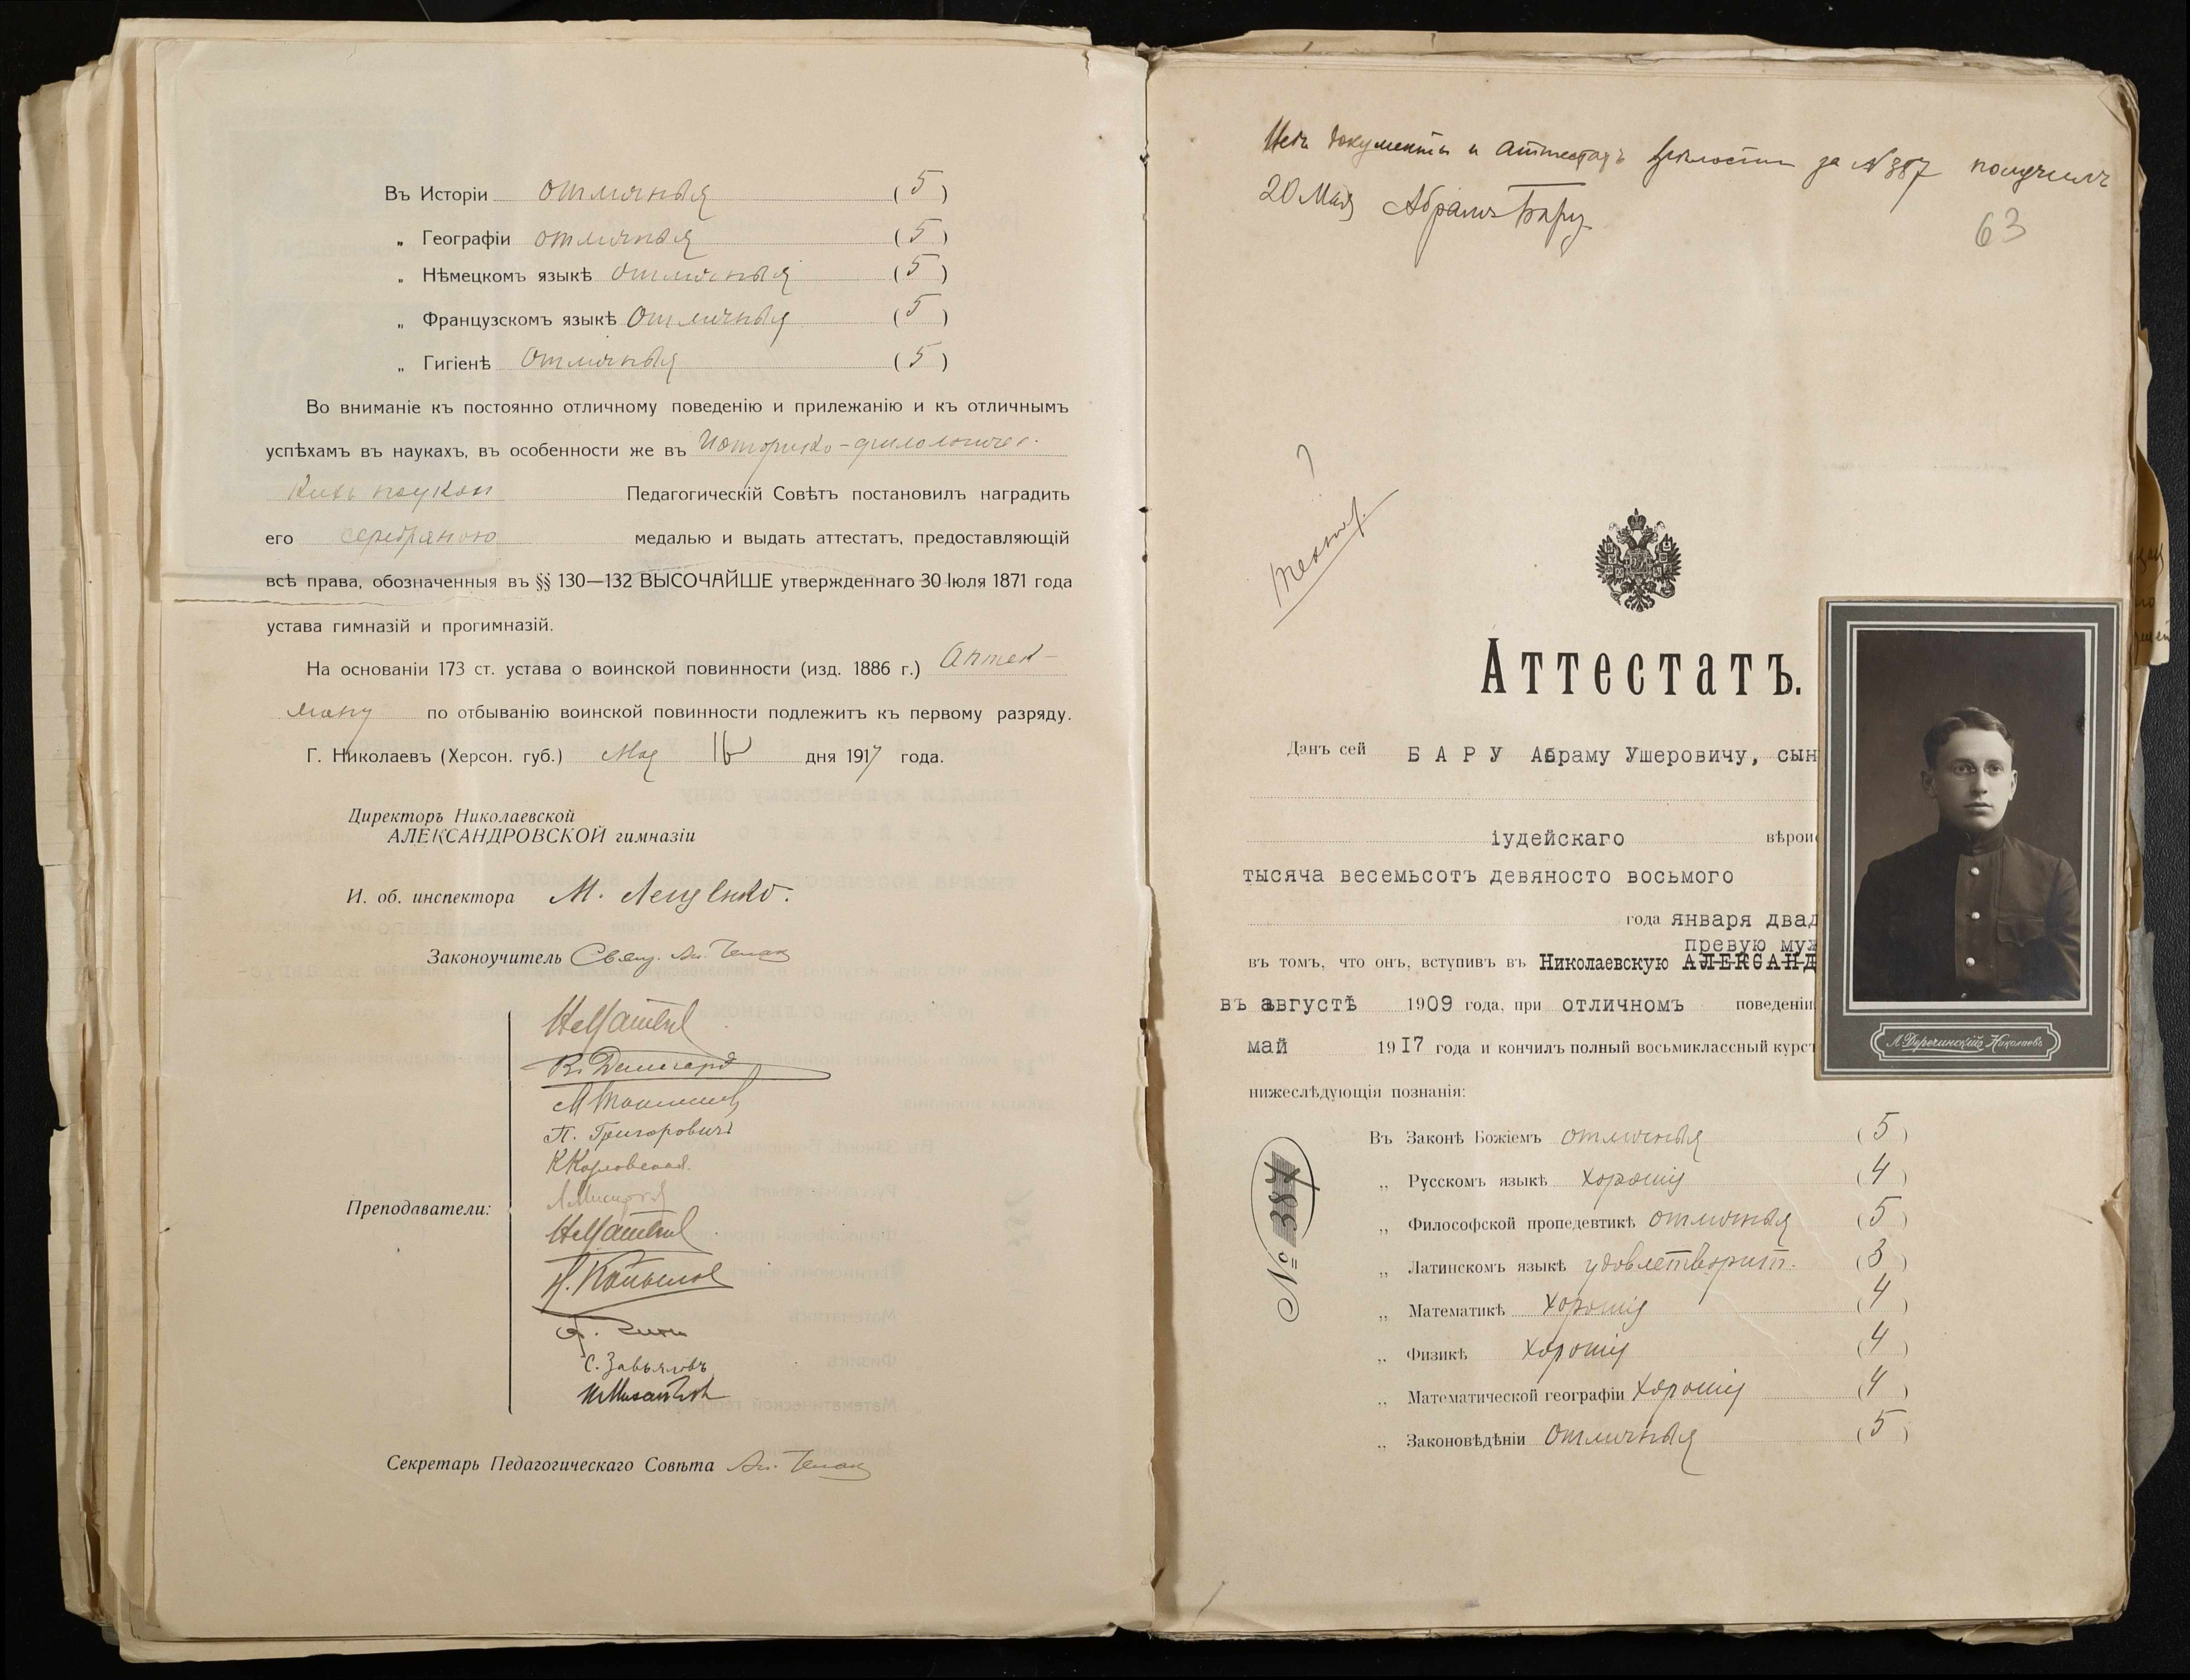 Въ Исторіи отличныя (5)
„ Географіи отличныя (5)
„ Нѣмецкомъ языкѣ отличныя (5)
„ Французскомъ языкѣ Отличныя (5)
„ Гигіенѣ Отличныя (5)
Во вниманіе къ постоянно отличному поведенію и прилежанію и къ отличнымъ
успѣхамъ въ наукахъ, въ особенности же въ Историко-филологичес-
кихъ наукахъ Педагогическій Совѣтъ постановилъ наградить
его серебряною медалью и выдать аттестатъ, предоставляющій
всѣ права, обозначенныя въ §§ 130—132 ВЫСОЧАЙШЕ утвержденнаго 30 Іюля 1871 года
устава гимназій и прогимназій.
На основаніи 173 ст. устава о воинской повинности (изд. 1886 г.) Аптек-
ману по отбыванію воинской повинности подлежитъ къ первому разряду.
Г. Николаевъ (Херсон. губ.) Мая 16 дня 1917 года.
Директоръ Николаевской
АЛЕКСАНДРОВСКОЙ гимназіи
И. об. инспектора М. Лещенко.
Законоучитель Свящ. Ан. Чепак
П. Григоровичъ
К Карловская
Преподаватели:
Н. Копылов
С. Завьяловъ
Секретарь Педагогическаго Совѣта Ан. Чепак
документы и аттестатъ зрѣлости за №387 получилъ
20 Мая Абрамъ Бару
63
Аттестатъ.
Данъ сей БАРУ Абраму Ушеровичу, сын
іудейскаго вѣроис
тысяча весемьсотъ девяносто восьмого
года января двад
превую муж
въ томъ, что онъ, вступивъ въ Николаевскую АЛЕКСАНД
въ августѣ 1909 года, при отличномъ поведеніи
май 1917 года и кончилъ полный восьмиклассный курсъ
нижеслѣдующія познанія:
Въ Законѣ Божіемъ отличныя (5)
„ Русскомъ языкѣ хорошія (4)
„ Философской пропедевтикѣ отличныя (5)
„ Латинскомъ языкѣ удовлетворит. (3)
„ Математикѣ хорошія (4)
„ Физикѣ хорошія (4)
„ Математической географіи хорошія (4)
„ Законовѣдѣніи Отличныя (5)
№ 387
Л. Деречинскій Николаевъ